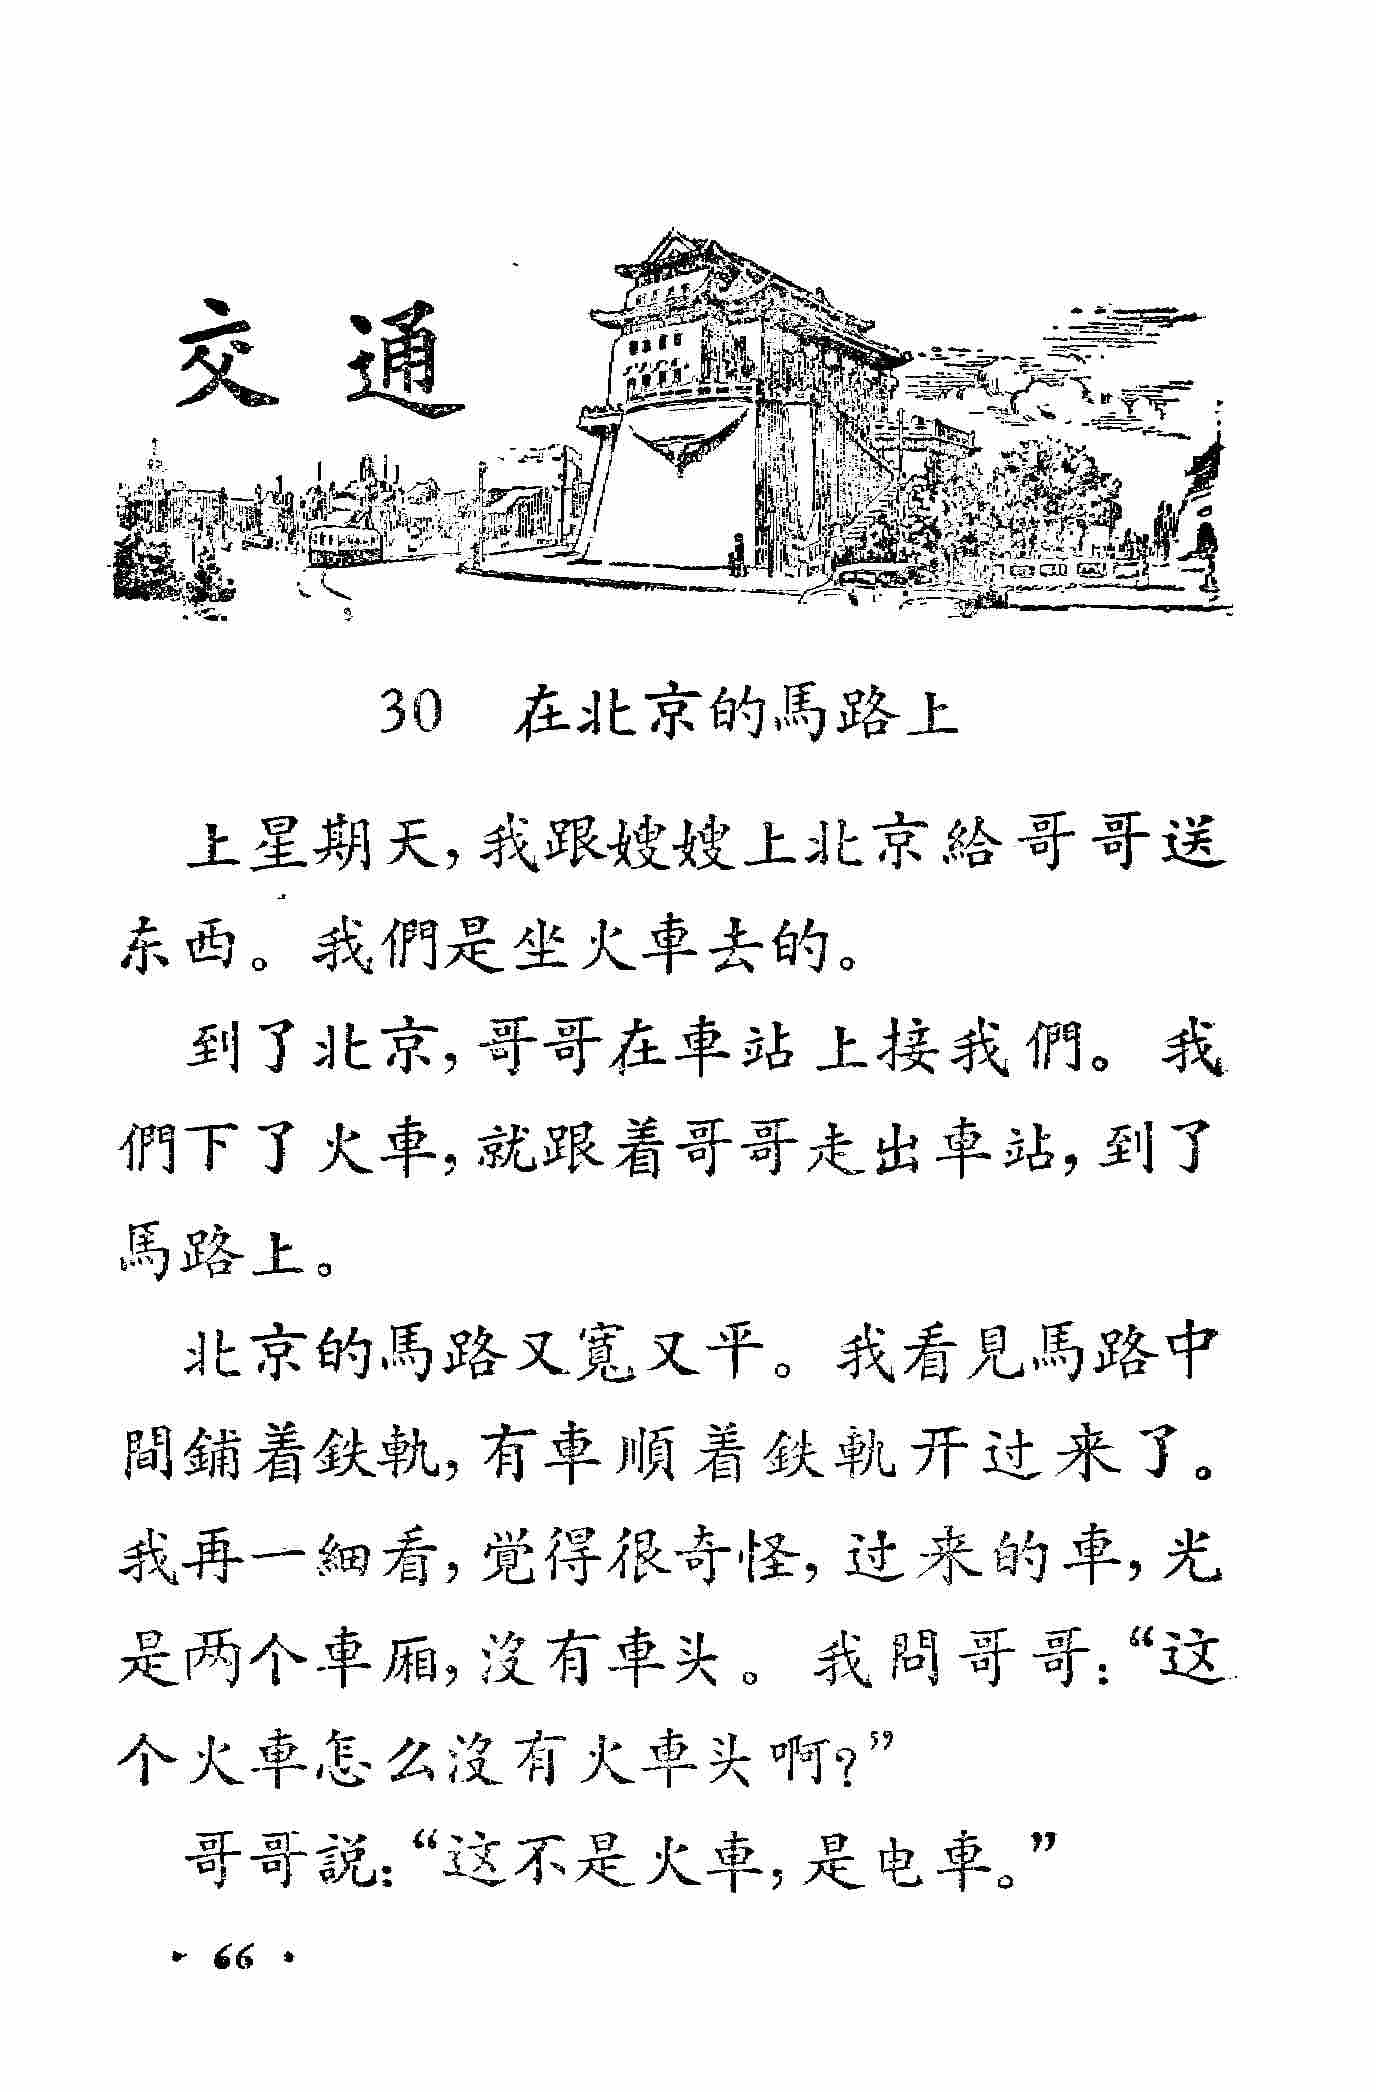 交通
30 在北京的馬路上
上星期天，我跟嫂嫂上北京給哥哥送
东西。我們是坐火車去的。
到了北京，哥哥在車站上接我們。我
們下了火車，就跟着哥哥走出車站，到了
馬路上。
北京的馬路又寬又平。我看見馬路中
間鋪着鉄軌，有車順着鉄軌开过来了。
我再一細看，覚得很奇怪，过来的車，光
是两个車厢，沒有車头。我問哥哥：“这
个火車怎么沒有火車头啊？”
哥哥説：“这不是火車，是电車。”
· 66 ·